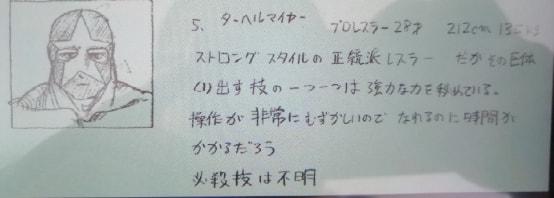 5、ターヘルマイヤー プロレスラー 28才 212cm
ストロングスタイルの正統派レスラー だがその巨体
くり出す技の一つ一つは強力な力を秘めている。
操作が非常にむずかしいので なれるのに時間が
かかるだろう
必殺技は不明